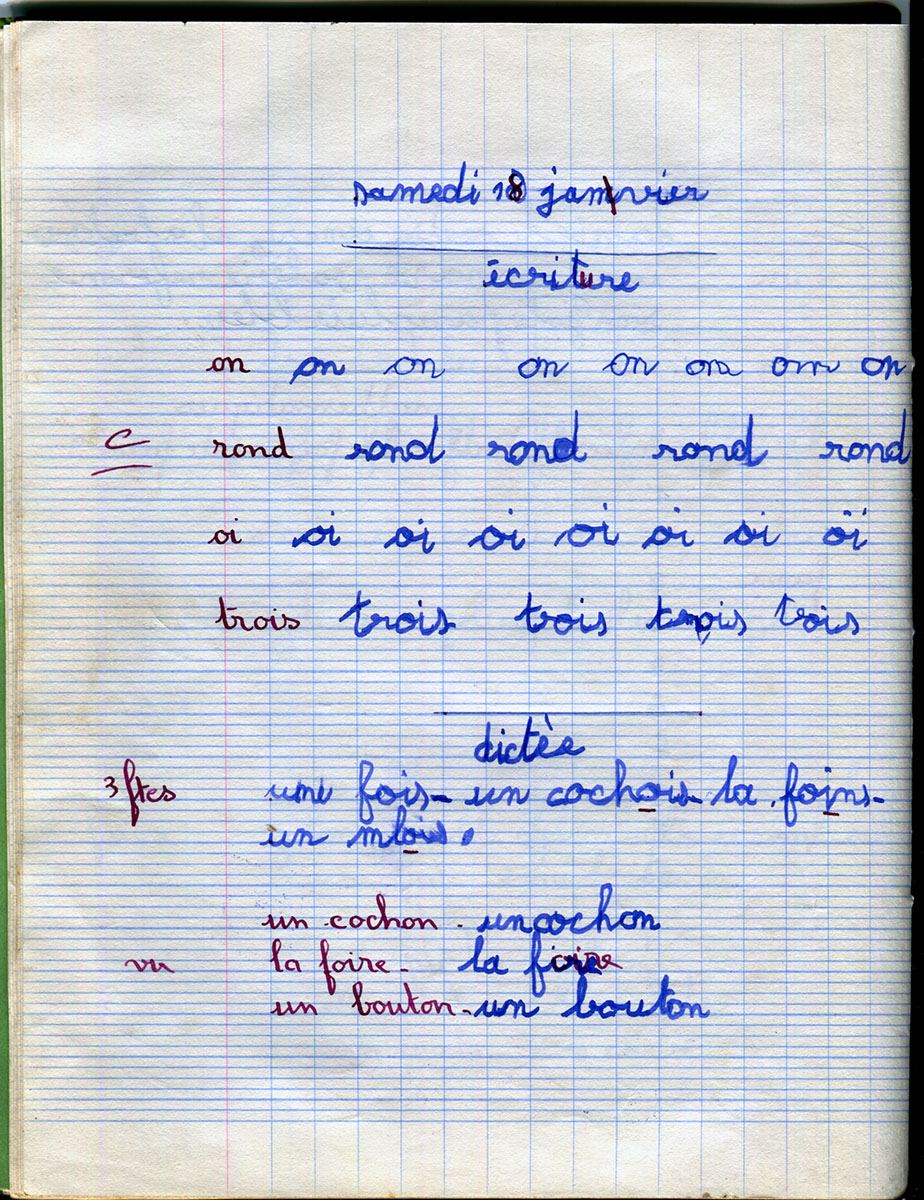 samedi 18 janvier
écriture
on on on on on on on on
C rond rond rond rond rond
oi oi oi oi oi oi oi oi
trois trois trois trois trois
dictèe
3 ftes une fois - un cochois - la foins -
un mlois.
un cochon - un cochon
vu la foire - la foire
un bouton - un bouton